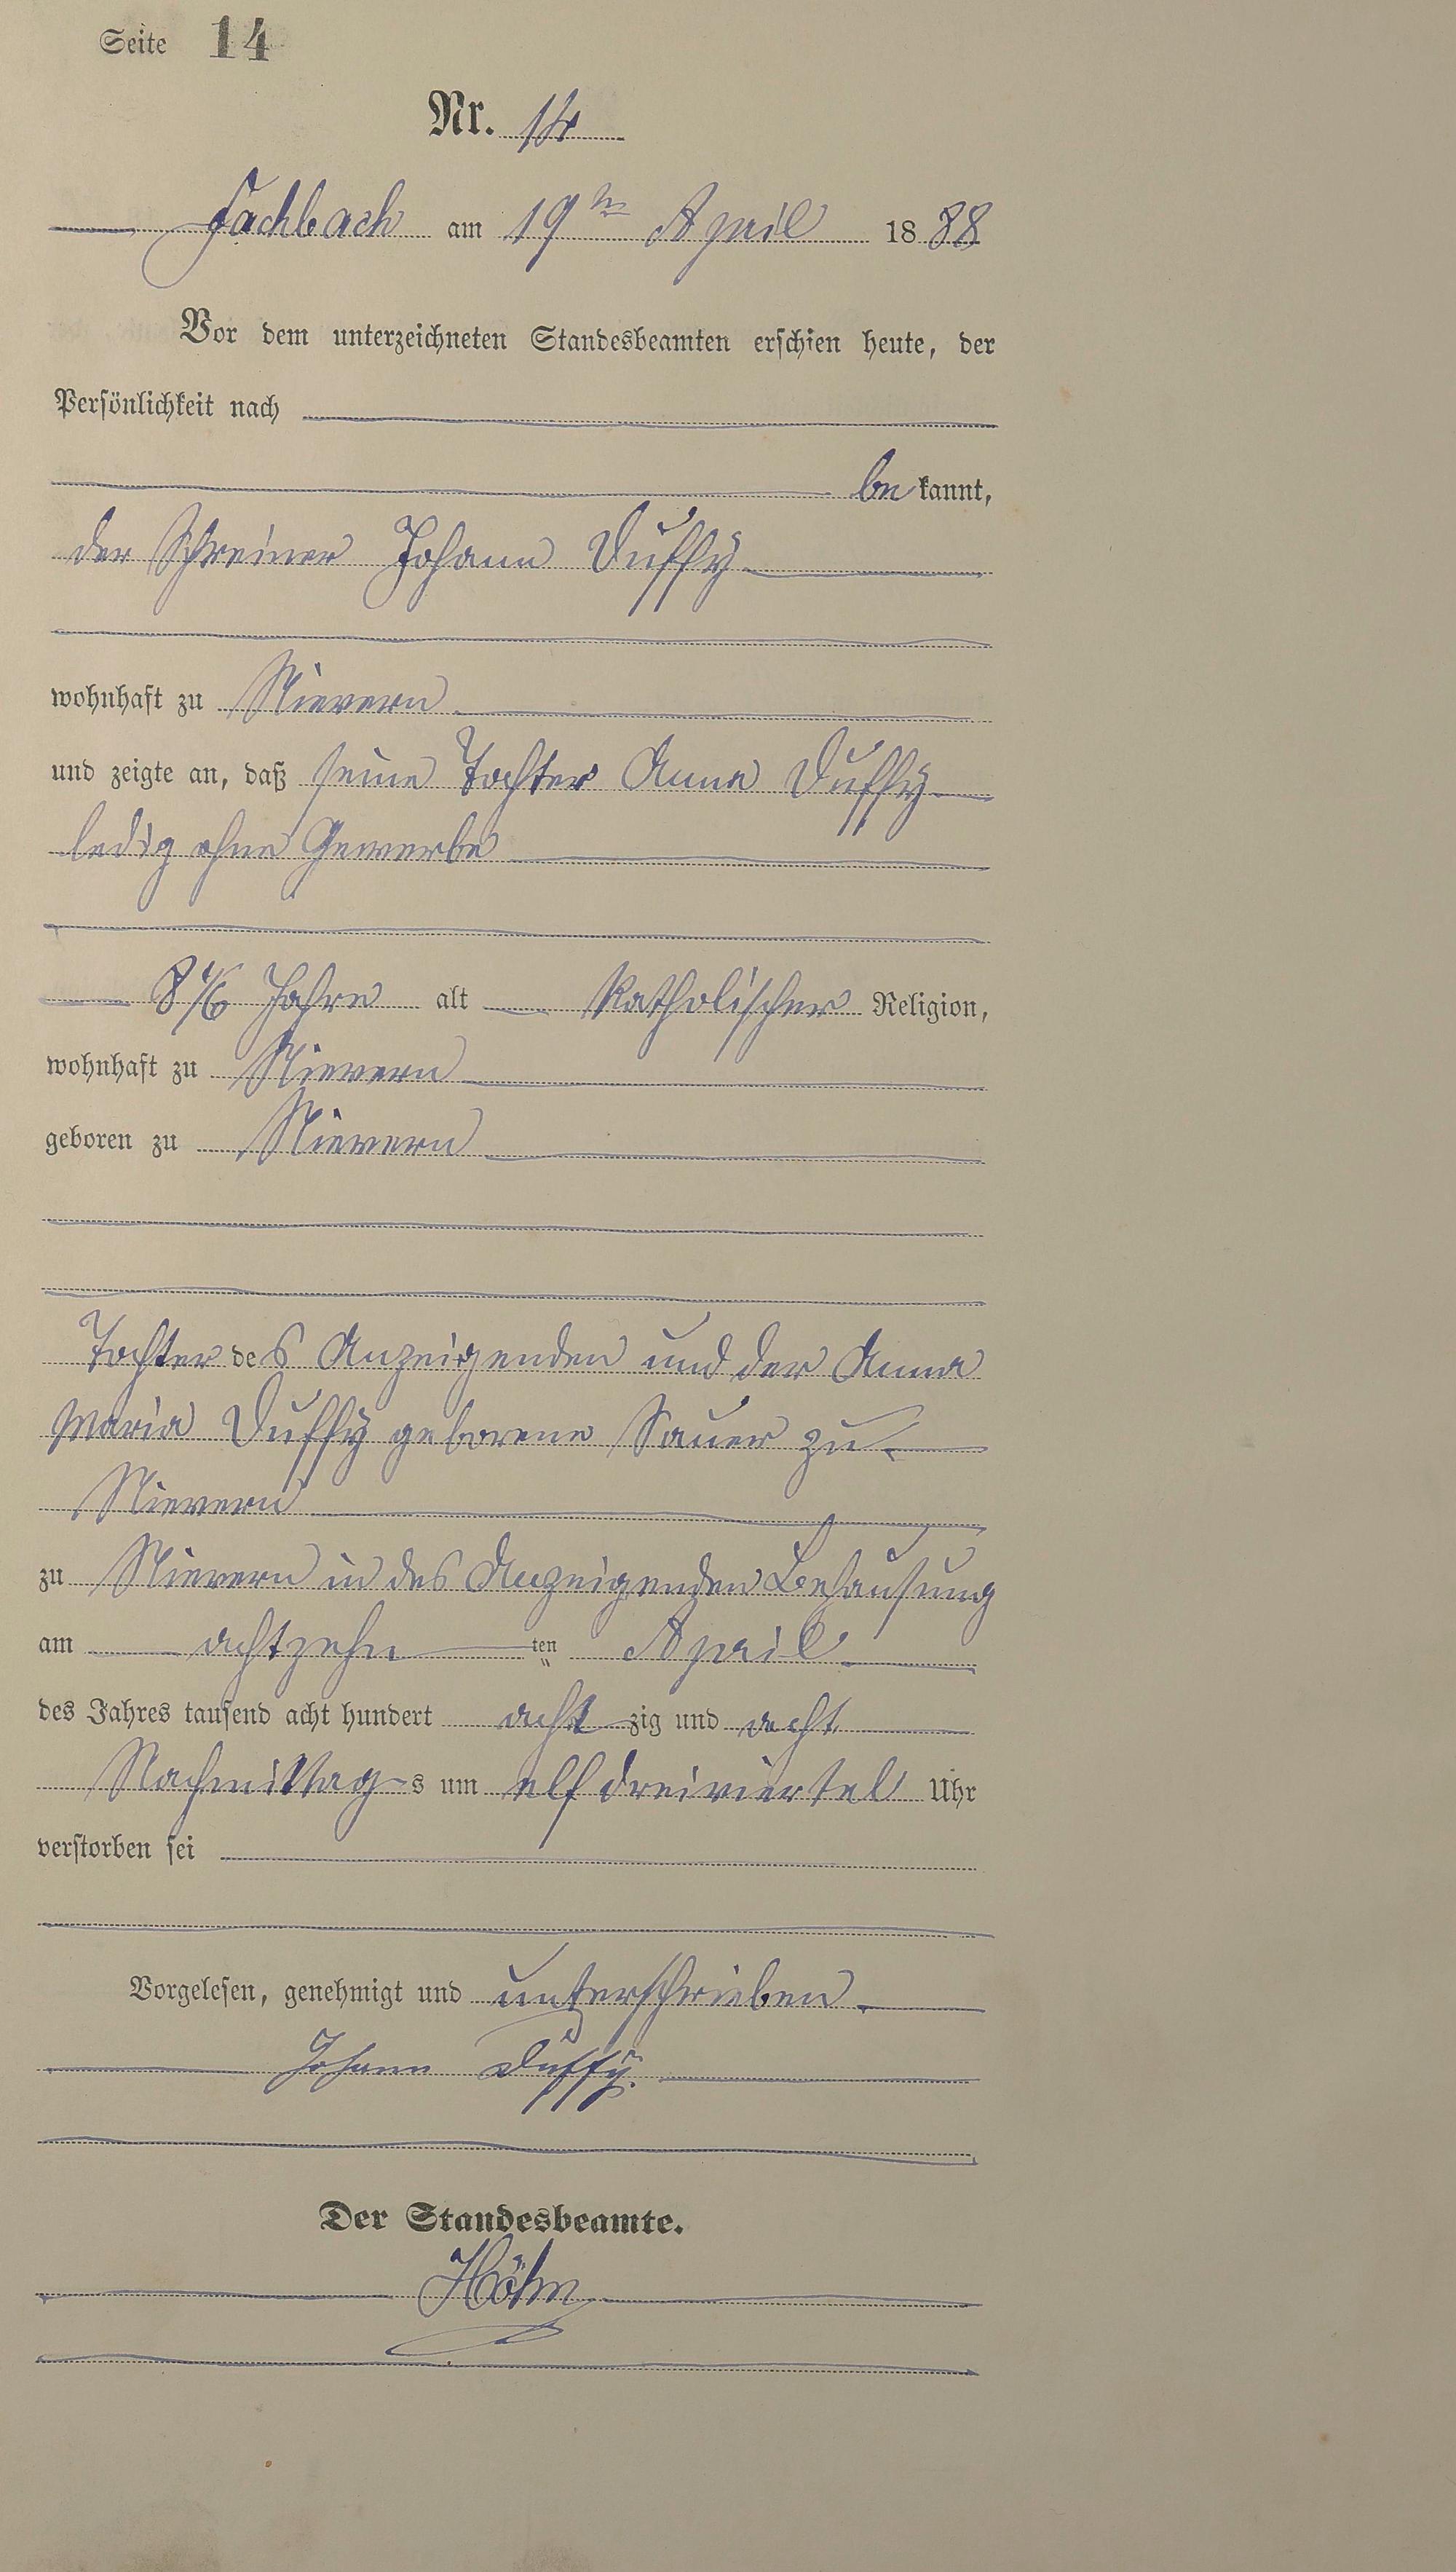 Seite 14
Nr. 14
Fachbach am 19ten April 1888
Vor dem unterzeichneten Standesbeamten erschien heute, der
Persönlichkeit nach
bekannt,
der Schreiner Johann Duffy
wohnhaft zu Nievern
und zeigte an, daß seine Tochter Anna Duffy
ledig ohne Gewerbe
8 1/6 Jahre alt katholischer Religion,
wohnhaft zu Nievern
geboren zu Nievern
Tochter des Anzeigenden und der Anna
Maria Duffy geborene Sauer zu
Nievern
zu Nievern in des Anzeigenden Behausung
am achtzehnten April
des Jahres tausend acht hundert achtzig und acht
Nachmittags um elf dreiviertel Uhr
verstorben sei
Vorgelesen, genehmigt und unterschrieben
Johann Duffy.
Der Standesbeamte.
Höhn